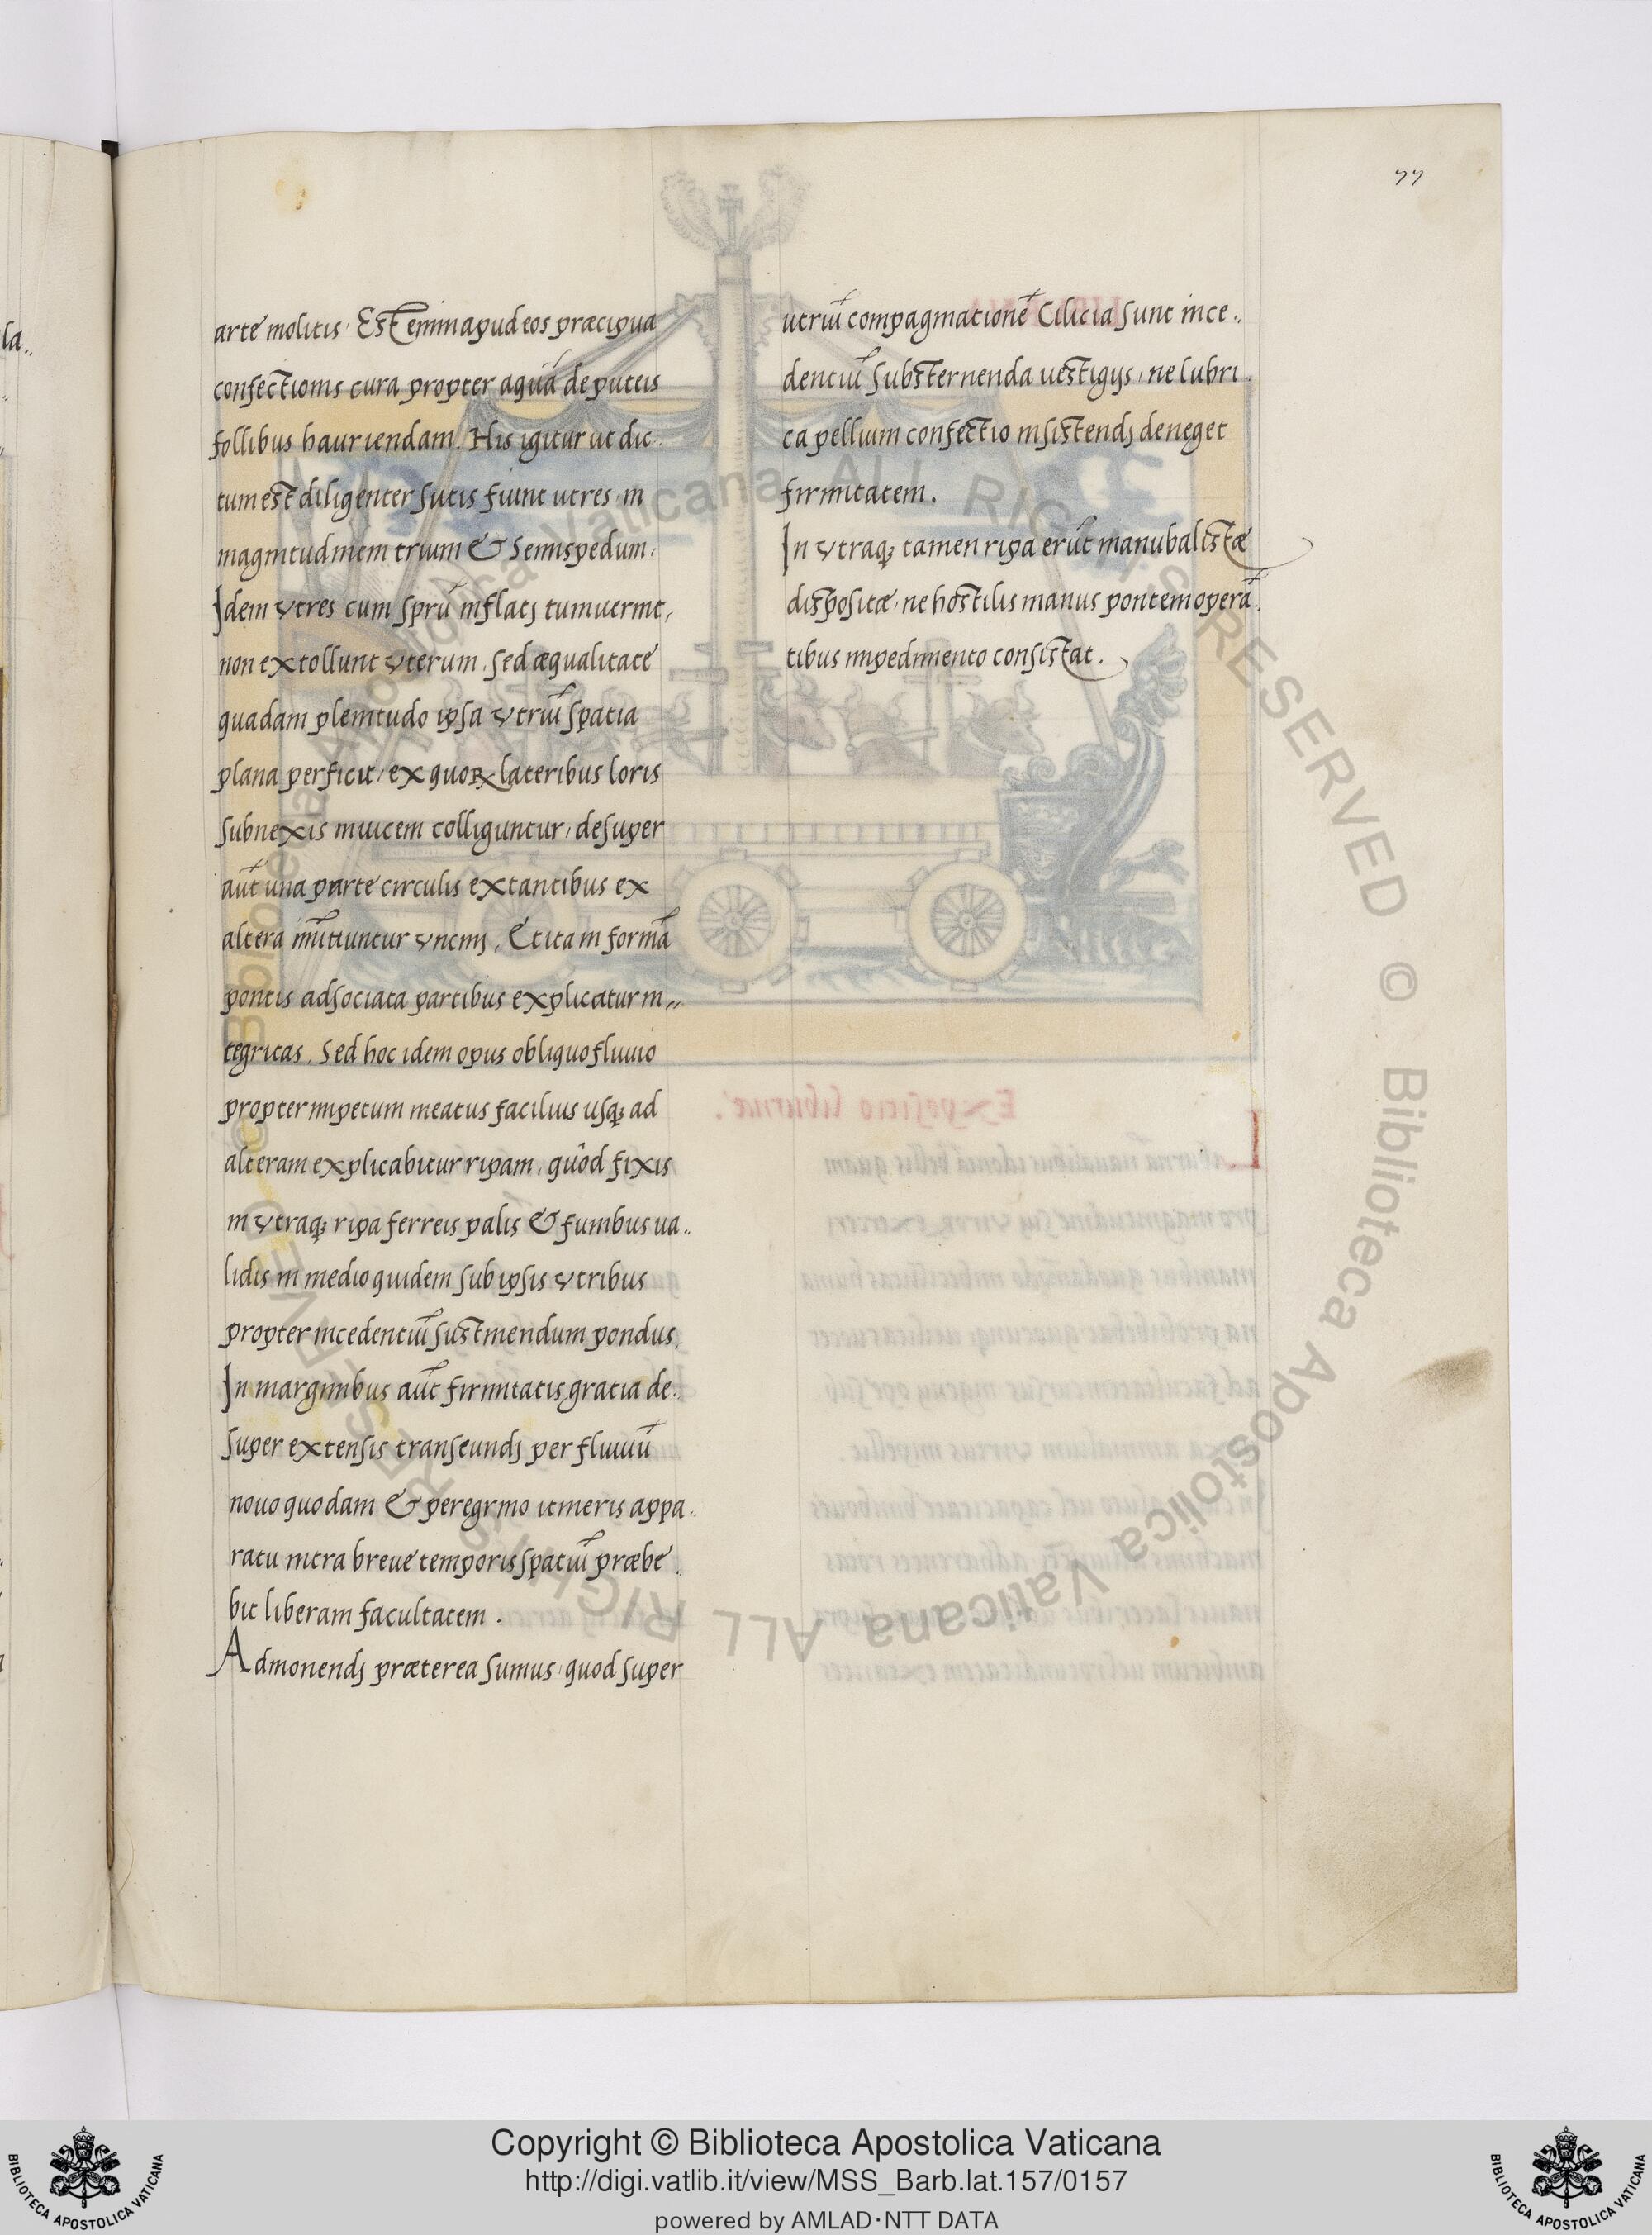 77
arte molitis. Est enim apud eos præcipua
confectionis cura propter aquā de puteis
follibus hauriendam. His igitur ut dic
tum est diligenter sutis fiunt utres in
magnitudinem trium & Semispedum.
Idem vtres cum spiū inflati tumuerint,
non extollunt vterum, sed æqualitate
quadam plenitudo ipsa vtriū spatia
plana perficit, ex quoꝝ lateribus loris
subnexis inuicem colliguntur, desuper
aūt una parte circulis extantibus ex
altera īmittuntur vncinj. Et ita in formā
pontis adsociata partibus explicatur in„
tegritas. Sed hoc idem opus obliquo fluuio
propter impetum meatus facilius usq; ad
alteram explicabitur ripam, quôd fixis
in vtraq; ripa ferreis palis & funibus ua„
lidis in medio quidem sub ipsis vtribus
propter incedentiū sustinendum pondus,
In marginibus aūt firmitatis gratia de.
super extensis transeundj per fluuiū
nouo quodam & peregrino itineris appa„
ratu intra breue temporis spatiū præbe.
bit liberam facultatem.
Admonendj præterea sumus, quod super
utriū compagmationē Cilicia sunt ince„
dentiū substernenda uestigijs, ne lubri„
ca pellium confectio insistendj deneget
firmitatem.
In vtraq; tamen ripa erūt manubalistæ
dispositæ, ne hostilis manus pontem operā„
tibus impedimento consistat.
la„
Copyright © Biblioteca Apostolica Vaticana
http://digi.vatlib.it/view/MSS_Barb.lat.157/0157
powered by AMLAD·NTT DATA
BIBLIOTECA APOSTOLICA VATICANA
BIBLIOTECA APOSTOLICA VATICANA
© Biblioteca Apostolica Vaticana ALL RIGHTS RESERVED
© Biblioteca Apostolica Vaticana ALL RIGHTS RESERVED